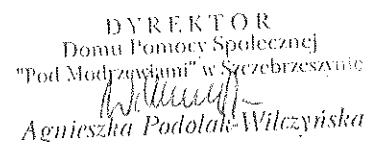 DYREKTOR
Domu Pomocy Społecznej
"Pod Modrzewiami" w Szczebrzeszynie
Agnieszka Podolak-Wilczyńska